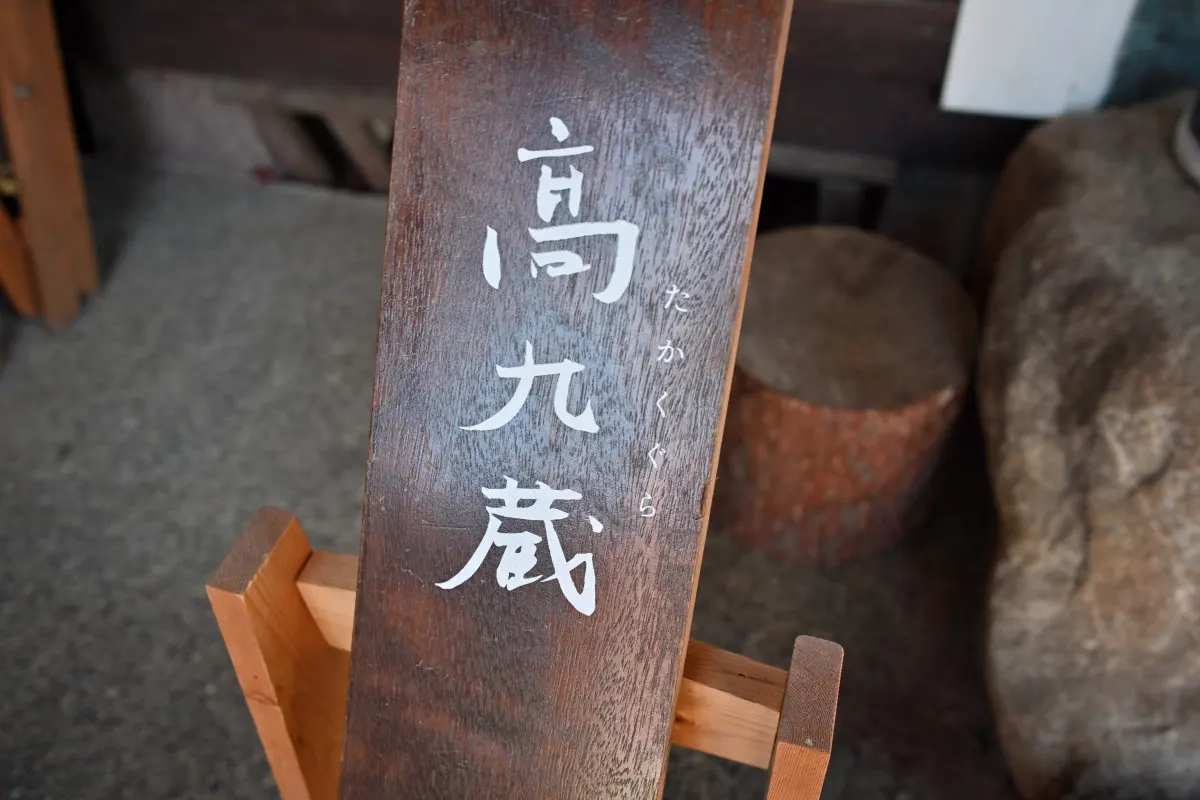 高九蔵
たかくぐら